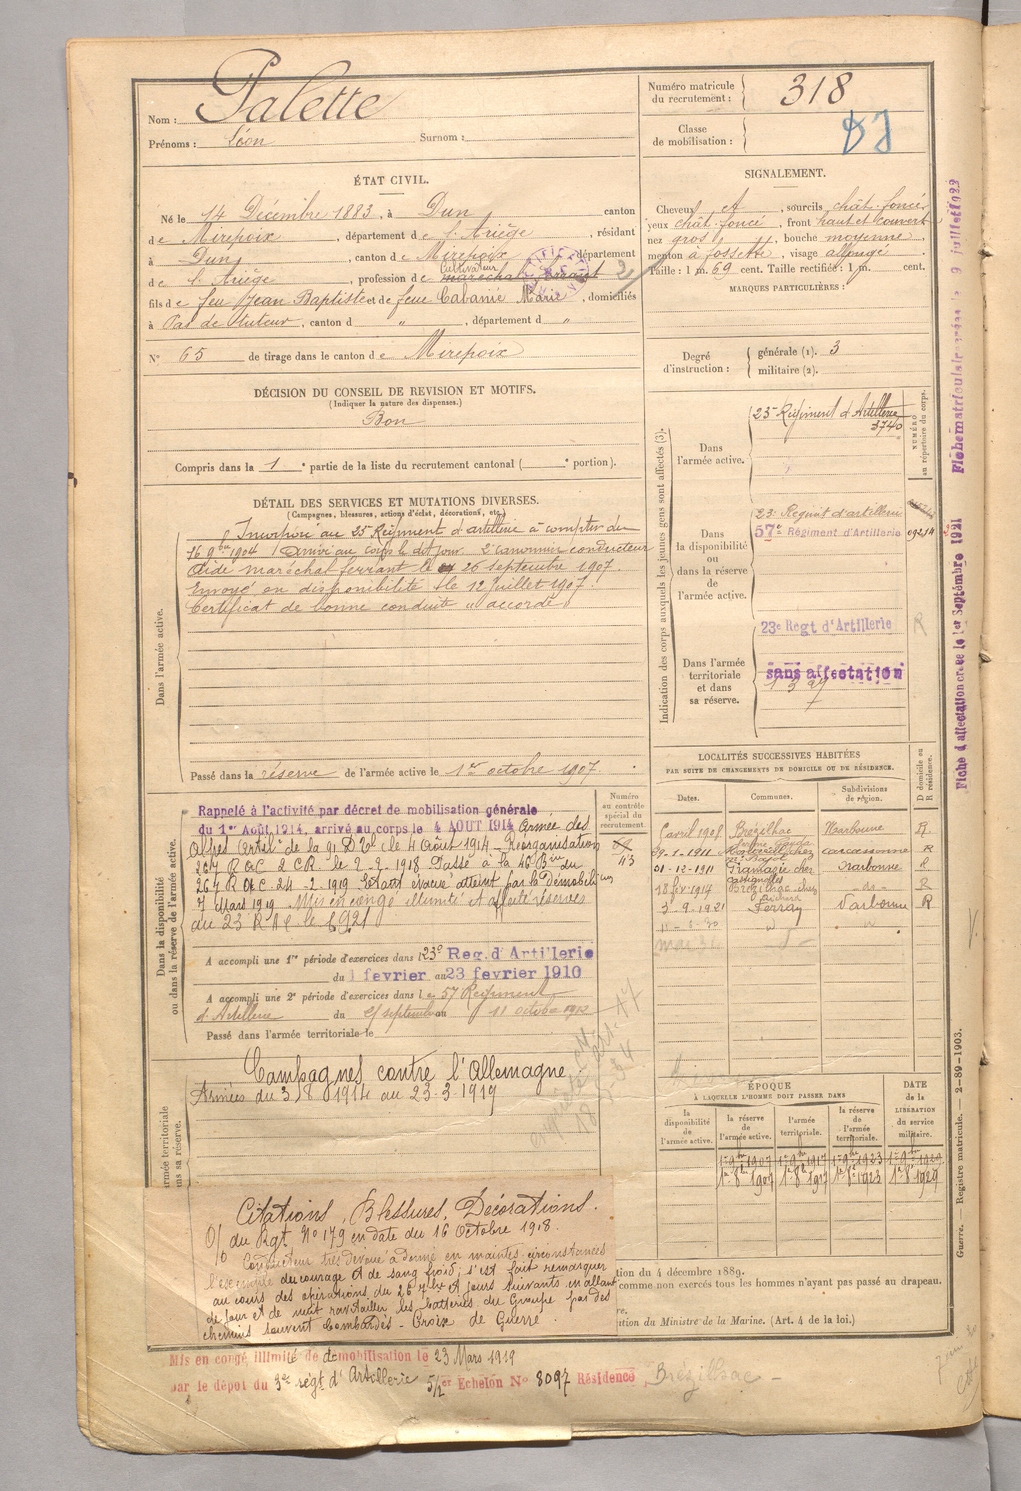 Nom : Palette
Prénoms : Léon Surnom :
Numéro matricule du recrutement : 318
Classe de mobilisation :
ÉTAT CIVIL.
Né le 14 Décembre 1883, à Dun canton
de Mirepoix, département de l'Ariège, résidant
à Dun, canton de Mirepoix, département
de l'Ariège, profession de cultivateur maréchal ferrant
fils de feu Jean Baptiste et de feue Cabanié Marie, domiciliés
à Pas de tuteur, canton d " , département d "
N° 65 de tirage dans le canton de Mirepoix
SIGNALEMENT.
Cheveux et, sourcils chât. foncé
yeux chât. foncé, front haut et couvert
nez gros, bouche moyenne
menton à fossette, visage allongé
Taille : 1 m. 69 cent. Taille rectifiée : 1 m. cent.
MARQUES PARTICULIÈRES :
Degré d'instruction : générale (1). 3
militaire (2).
DÉCISION DU CONSEIL DE REVISION ET MOTIFS.
(Indiquer la nature des dispenses.)
Bon
Compris dans la 1e partie de la liste du recrutement cantonal ( e portion).
DÉTAIL DES SERVICES ET MUTATIONS DIVERSES.
(Campagnes, blessures, actions d'éclat, décorations, etc.)
Dans l'armée active.
Incorporé au 23e Régiment d'artillerie à compter du
16 9bre 1904. Arrivé au corps le dit jour. 2e canonnier conducteur
Aide maréchal ferrant le 26 septembre 1907.
Envoyé en disponibilité le 12 Juillet 1907.
Certificat de bonne conduite "accordé"
Passé dans la réserve de l'armée active le 1er octobre 1907.
Indication des corps auxquels les jeunes gens sont affectés (3).
NUMÉRO au répertoire du corps.
Dans l'armée active.
23e Régiment d'Artillerie
3740
Dans la disponibilité ou dans la réserve de l'armée active.
23e Régiment d'artillerie
57e Régiment d'Artillerie
23e Régt d'Artillerie
R
Dans l'armée territoriale et dans sa réserve.
sans affectation
Dans la disponibilité ou dans la réserve de l'armée active.
Numéro au contrôle spécial du recrutement.
43
Rappelé à l'activité par décret de mobilisation générale
du 1er Août 1914, arrivé au corps le 4 AOUT 1914 Armée des
Alpes le 4 Août 1914 - Réorganisation
264 R A C 2 C R le 2-2-1918 Passé à la 46 Bie du
264 R A C 24-2-1919 atteint par la Démobilion
7 Mars 1919 Mis en congé illimité et affecté réserves
au 23e R A C le 1921
A accompli une 1re période d'exercices dans le 23e Reg. d'Artillerie
du 1 février au 23 fevrier 1910
A accompli une 2e période d'exercices dans le 57 Régiment
d'Artillerie du septembre au 11 octobre 1912
Passé dans l'armée territoriale le
LOCALITÉS SUCCESSIVES HABITÉES
PAR SUITE DE CHANGEMENTS DE DOMICILE OU DE RÉSIDENCE.
Dates. Communes. Subdivisions de région. D domicile ou R résidence.
6 avril 1908 Brézilhac Narbonne R.
29-1-1911 Carcassonne R
01-12-1911 Gramazie chez Narbonne R
18 fév 1914 Brézilhac chez R
3-9-1921 Ferran Narbonne R
11-6-30 "
Campagnes contre l'Allemagne.
Armées du 3/8/1914 au 23-3-1919
ÉPOQUE
À LAQUELLE L'HOMME DOIT PASSER DANS
DATE de la LIBÉRATION du service militaire.
la disponibilité de l'armée active. la réserve de l'armée active. l'armée territoriale. la réserve de l'armée territoriale.
1er 9bre 1907 1er 9bre 1917 1er 9bre 1923 1er 9bre 1929
1er 8bre 1907 1er 8bre 1917 1er 8bre 1923 1er 8bre 1929
Citations, Blessures, Décorations.
O/ du Rgt N° 179 en date du 16 Octobre 1918.
Conducteur très dévoué a donné en maintes circonstances
l'exemple du courage et de sang froid, s'est fait remarquer
au cours des opérations du 26 7bre et jours suivants en allant
de jour et de nuit ravitailler les batteries du Groupe par des
chemins souvent bombardés - Croix de Guerre
tion du 4 décembre 1889.
comme non exercés tous les hommes n'ayant pas passé au drapeau.
ution du Ministre de la Marine. (Art. 4 de la loi.)
Mis en congé illimité de démobilisation le 23 Mars 1919
par le dépot du 3e régt d'Artillerie 5/2er Echelon N° 8097 Résidence Brézilhac
Fiche matriculaire créée le 9 juillet 1923
Fiche d'affectation créée le 1er Septembre 1921
Guerre. — Registre matricule. — 2-89-1903.